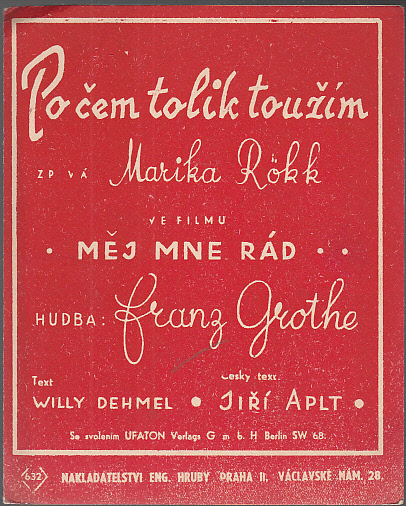 Po čem tolik toužím
ZPÍVÁ Marika Rökk
VE FILMU
• MĚJ MNE RÁD • •
HUDBA: Franz Grothe
Text Český text:
WILLY DEHMEL • JIŘÍ APLT •
Se svolením UFATON Verlags G m b. H Berlin SW 68.
632 NAKLADATELSTVI ENG. HRUBY PRAHA II, VÁCLAVSKÉ NÁM. 28.